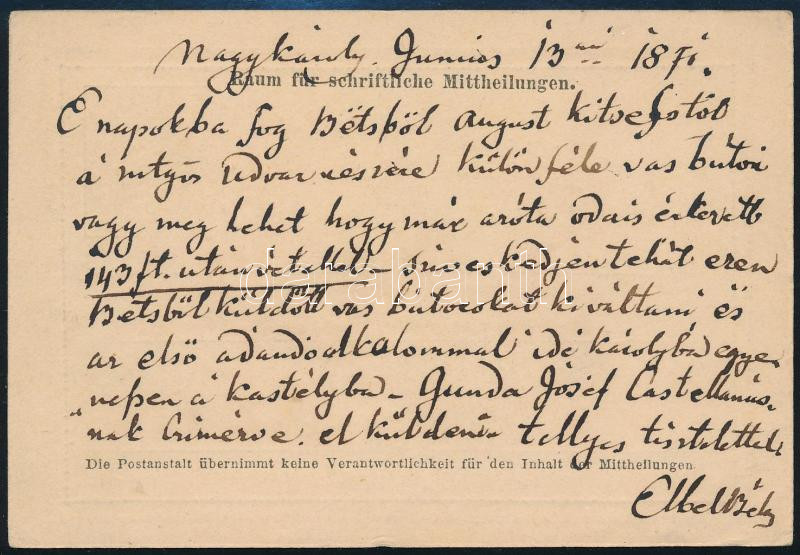 Nagykároly. Junius 13án 1871.
Raum für schriftliche Mittheilungen.
E napokba fog Bétsböl August
á udvar részére különféle vas bútor
vagy meg lehet hogy már aróta oda is érkezett
143 ft. utánvétellel – szíveskedjen tehát ezen
Bétsböl küldött vas bútorokat kiváltani és
az elsö adandó alkalommal ide károlyba egye-
"neßen á kastélyba – Gunda Jósef Castellánus-
nak Czimezve. el küldeni – tellyes tisztelettel
Die Postanstalt übernimmt keine Verantwortlichkeit für den Inhalt der Mittheilungen.
Elbel Béla
darabanth